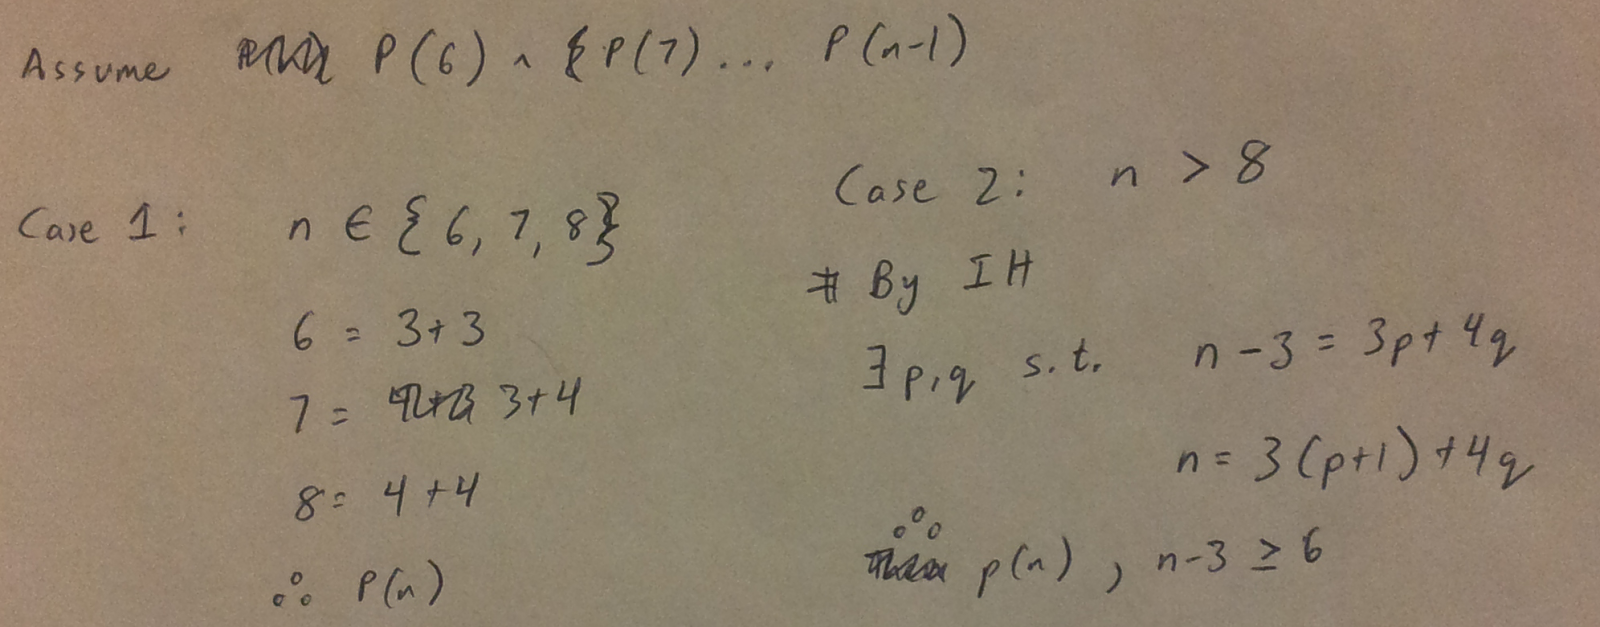 Assume P(6) ∧ P(7) ... P(n-1)
Case 1: n ∈ {6, 7, 8}
6 = 3+3
7 = 3+4
8 = 4+4
∴ P(n)
Case 2: n > 8
By IH
∃ p,q s.t. n-3 = 3p+4q
n = 3(p+1)+4q
∴ p(n), n-3 ≥ 6